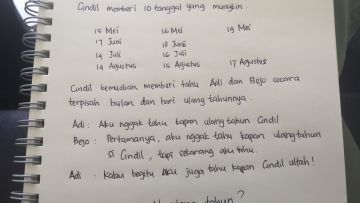 Cindil memberi 10 tanggal yang mungkin.
15 Mei 16 Mei 19 Mei
17 Juni 18 Juni
14 Juli 16 Juli
14 Agustus 15 Agustus 17 Agustus
Cindil kemudian memberi tahu Adi dan Bejo secara
terpisah bulan dan hari ulang tahunnya.
Adi : Aku nggak tahu kapan ulang tahun Cindil
Bejo : Pertamanya, aku nggak tahu kapan ulang tahun
si Cindil, tapi sekarang aku tahu.
Adi : Kalau begitu aku juga tahu kapan Cindil ultah!
tahun ?